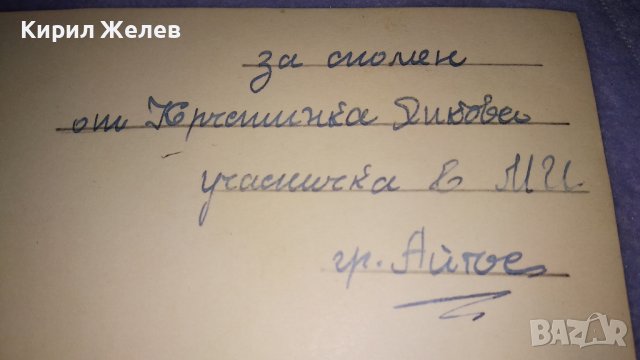 Кирил Желев
за спомен
от Кръстинка Дикова
ученичка в МГ.
гр. Айтос
BAZAR